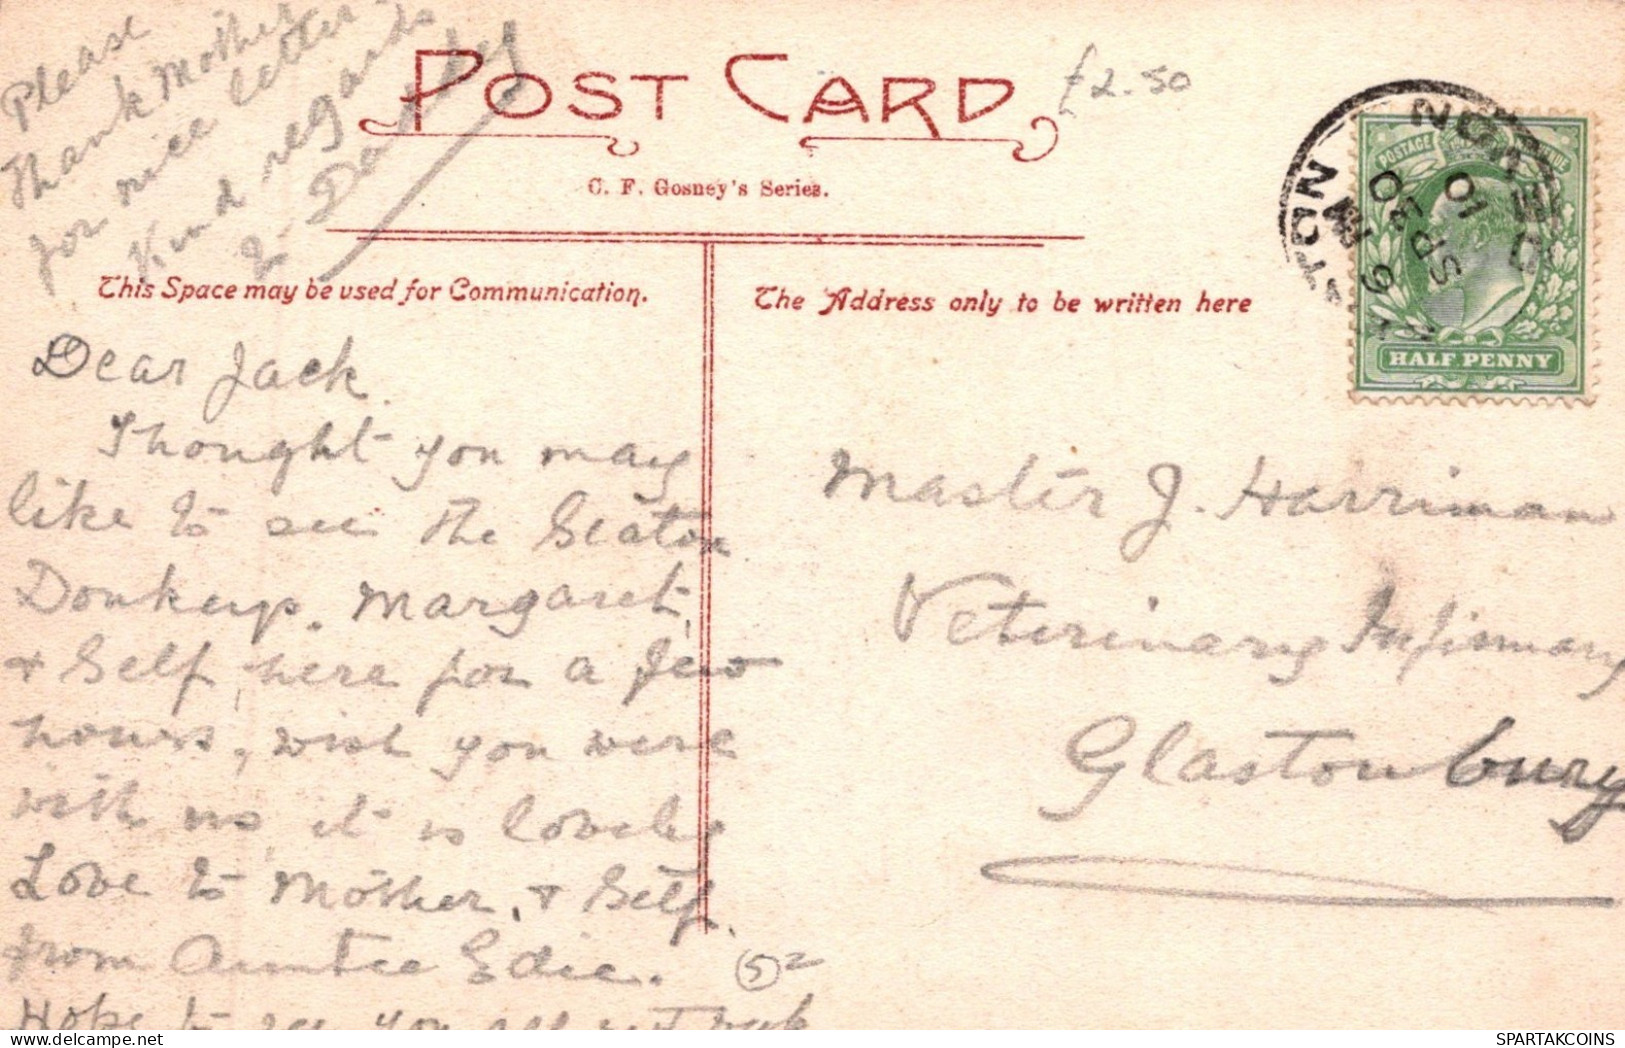 Please
thank Mother
for nice letter
Kind regards
to Daddy
POST CARD
£2.50
C. F. Gosney's Series.
This Space may be used for Communication.
The Address only to be written here
POSTAGE
HALF PENNY
Dear Jack.
Thought you may
like to see the Seaton
Donkeys. Margaret,
& Self, here for a few
hours, wish you were
with us, it is lovely
Love to Mother, & Self.
from Auntie Edie.
Hope to see you all next week
Master J. Harriman
Veterinary Infirmary
Glastonbury
52
SPARTAKCOINS